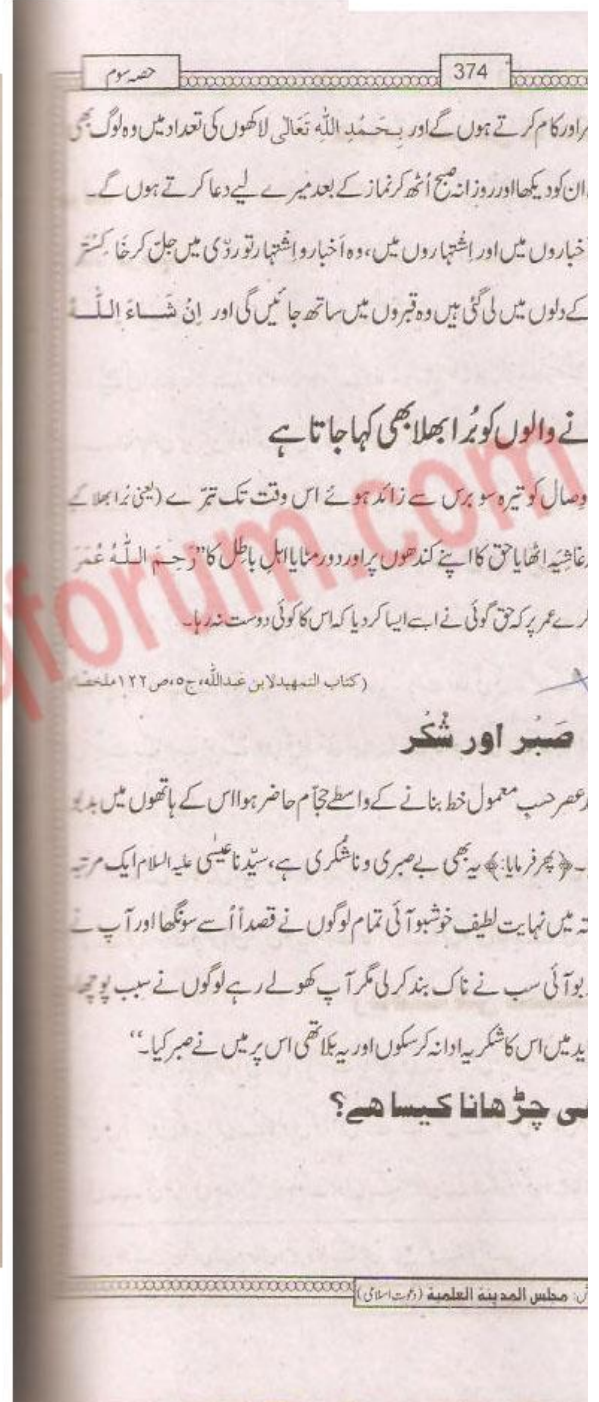 حصہ سوم
374
راور کام کرتے ہوں گے اور بِحَمْدِ اللّٰہ تَعَالٰی لاکھوں کی تعداد میں وہ لوگ بھی
ان کو دیکھا اور روزانہ صبح اُٹھ کر نماز کے بعد میرے لیے دعا کرتے ہوں گے۔
خباروں میں اور اِشْتہاروں میں، وہ اَخبار و اِشْتہار تو ردّی میں جل کر خاکِسْتَر
کے دلوں میں لی گئی ہیں وہ قبروں میں ساتھ جائیں گی اور اِنْ شَــاءَ الـلّٰــهُ
نے والوں کو بُرا بھلا بھی کہا جاتا ہے
وِصال کو تیرہ سو برس سے زائد ہوئے اس وقت تک تبرّے (یعنی بُرا بھلا کے
غاشِیَہ اٹھایا حق کا اپنے کندھوں پر اور دور مٹایا اہلِ باطِل کا "رَحِمَ الـلّٰـهُ عُمَرَ
کرے عمر پر کہ حق گوئی نے اسے ایسا کر دیا کہ اس کا کوئی دوست نہ رہا۔
(کتاب التمهید لابن عبدالله، ج٥، ص ١٢٢ ملخصًا
صَبْر اور شُکْر
عصر حسبِ معمول خط بنانے کے واسطے حجّام حاضر ہوا اس کے ہاتھوں میں بدبو
۔﴿پھر فرمایا:﴾ یہ بھی بے صبری و ناشُکری ہے، سیّدنا عیسٰی علیہ السلام ایک مرتبہ
تہ میں نہایت لطیف خوشبو آئی تمام لوگوں نے قصداً اُسے سونگھا اور آپ نے
بو آئی سب نے ناک بند کر لی مگر آپ کھولے رہے لوگوں نے سبب پوچھا
ید میں اس کا شکریہ ادا نہ کرسکوں اور یہ بَلا تھی اس پر میں نے صبر کیا۔‘‘
ـی چڑھانا کیسا ھے؟
ش: مجلس المدینۃ العلمیۃ (دعوتِ اسلامی)
qforum.com